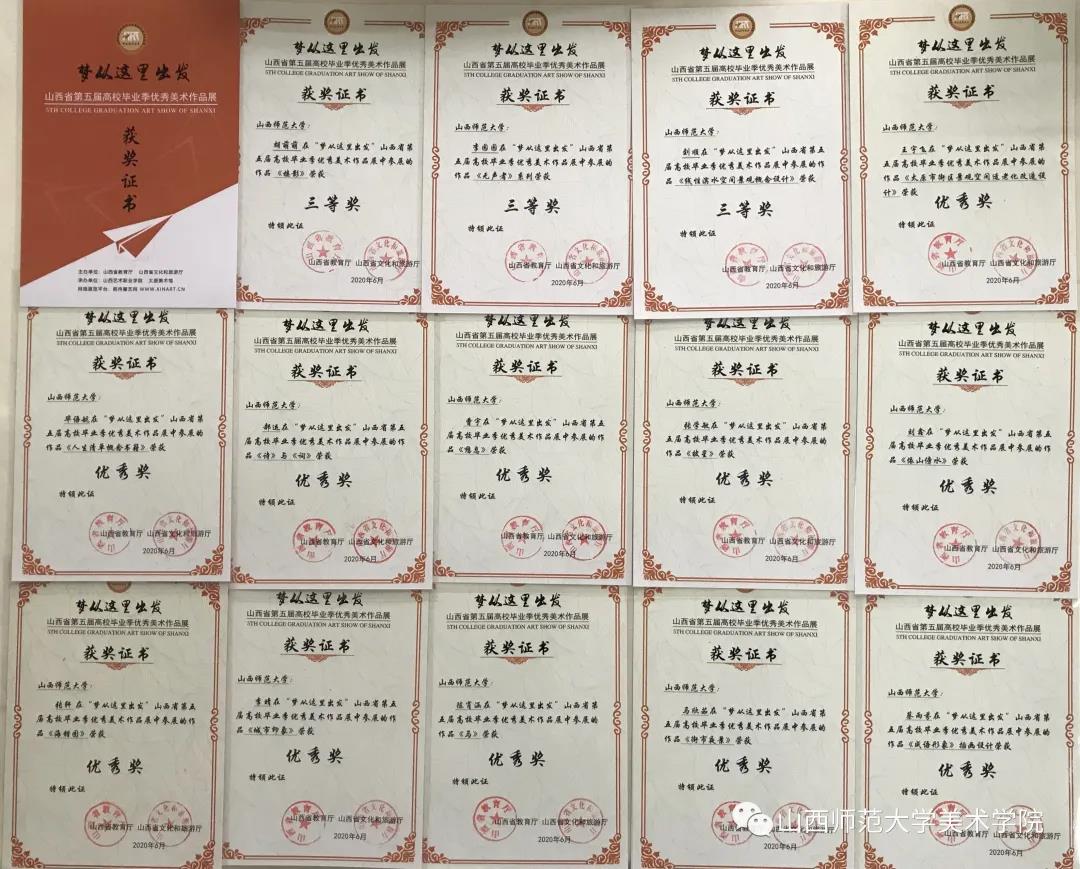 梦从这里出发
山西省第五届高校毕业季优秀美术作品展
5TH COLLEGE GRADUATION ART SHOW OF SHANXI
获奖证书
主办单位：山西省教育厅 山西省文化和旅游厅
承办单位：山西艺术职业学院 太原美术馆
网络展览平台：新尚艺百网 WWW.XINART.CN
梦从这里出发
山西省第五届高校毕业季优秀美术作品展
5TH COLLEGE GRADUATION ART SHOW OF SHANXI
获奖证书
山西师范大学：
胡萌萌在“梦从这里出发”山西省第
五届高校毕业季优秀美术作品展中参展的
作品《掠影》荣获
三等奖
特颁此证
山西省教育厅 山西省文化和旅游厅
2020年6月
梦从这里出发
山西省第五届高校毕业季优秀美术作品展
5TH COLLEGE GRADUATION ART SHOW OF SHANXI
获奖证书
山西师范大学：
李园园在“梦从这里出发”山西省第
五届高校毕业季优秀美术作品展中参展的
作品《无声者》系列荣获
三等奖
特颁此证
山西省教育厅 山西省文化和旅游厅
2020年6月
梦从这里出发
山西省第五届高校毕业季优秀美术作品展
5TH COLLEGE GRADUATION ART SHOW OF SHANXI
获奖证书
山西师范大学：
刘顺在“梦从这里出发”山西省第
五届高校毕业季优秀美术作品展中参展的
作品《线性滨水空间景观概念设计》荣获
三等奖
特颁此证
山西省教育厅 山西省文化和旅游厅
2020年6月
梦从这里出发
山西省第五届高校毕业季优秀美术作品展
5TH COLLEGE GRADUATION ART SHOW OF SHANXI
获奖证书
山西师范大学：
王宇飞在“梦从这里出发”山西省第
五届高校毕业季优秀美术作品展中参展的
作品《太原市街区景观空间适老化改造设
计》荣获
优秀奖
特颁此证
山西省教育厅 山西省文化和旅游厅
2020年6月
梦从这里出发
山西省第五届高校毕业季优秀美术作品展
5TH COLLEGE GRADUATION ART SHOW OF SHANXI
获奖证书
山西师范大学：
毕语航在“梦从这里出发”山西省第
五届高校毕业季优秀美术作品展中参展的
作品《人生清单概念书籍》荣获
优秀奖
特颁此证
山西省教育厅 山西省文化和旅游厅
2020年6月
梦从这里出发
山西省第五届高校毕业季优秀美术作品展
5TH COLLEGE GRADUATION ART SHOW OF SHANXI
获奖证书
山西师范大学：
在“梦从这里出发”山西省第
五届高校毕业季优秀美术作品展中参展的
作品《诗》与《词》荣获
优秀奖
特颁此证
山西省教育厅 山西省文化和旅游厅
2020年6月
梦从这里出发
山西省第五届高校毕业季优秀美术作品展
5TH COLLEGE GRADUATION ART SHOW OF SHANXI
获奖证书
山西师范大学：
曹宇在“梦从这里出发”山西省第
五届高校毕业季优秀美术作品展中参展的
作品《憩息》荣获
优秀奖
特颁此证
山西省教育厅 山西省文化和旅游厅
2020年6月
梦从这里出发
山西省第五届高校毕业季优秀美术作品展
5TH COLLEGE GRADUATION ART SHOW OF SHANXI
获奖证书
山西师范大学：
张学敏在“梦从这里出发”山西省第五
届高校毕业季优秀美术作品展中参展的作
品《故里》荣获
优秀奖
特颁此证
山西省教育厅 山西省文化和旅游厅
2020年6月
梦从这里出发
山西省第五届高校毕业季优秀美术作品展
5TH COLLEGE GRADUATION ART SHOW OF SHANXI
获奖证书
山西师范大学：
刘鑫在“梦从这里出发”山西省第五
届高校毕业季优秀美术作品展中参展的作
品《依山傍水》荣获
优秀奖
特颁此证
山西省教育厅 山西省文化和旅游厅
2020年6月
梦从这里出发
山西省第五届高校毕业季优秀美术作品展
5TH COLLEGE GRADUATION ART SHOW OF SHANXI
获奖证书
山西师范大学：
在“梦从这里出发”山西省第五
届高校毕业季优秀美术作品展中参展的作
品《海错图》荣获
优秀奖
特颁此证
山西省教育厅 山西省文化和旅游厅
2020年6月
梦从这里出发
山西省第五届高校毕业季优秀美术作品展
5TH COLLEGE GRADUATION ART SHOW OF SHANXI
获奖证书
山西师范大学：
李婧在“梦从这里出发”山西省第五
届高校毕业季优秀美术作品展中参展的作
品《城市印象》荣获
优秀奖
特颁此证
山西省教育厅 山西省文化和旅游厅
2020年6月
梦从这里出发
山西省第五届高校毕业季优秀美术作品展
5TH COLLEGE GRADUATION ART SHOW OF SHANXI
获奖证书
山西师范大学：
在“梦从这里出发”山西省第
五届高校毕业季优秀美术作品展中参展的
作品《马》荣获
优秀奖
特颁此证
山西省教育厅 山西省文化和旅游厅
2020年6月
梦从这里出发
山西省第五届高校毕业季优秀美术作品展
5TH COLLEGE GRADUATION ART SHOW OF SHANXI
获奖证书
山西师范大学：
马欣茹在“梦从这里出发”山西省第
五届高校毕业季优秀美术作品展中参展的
作品《街市夜景》荣获
优秀奖
特颁此证
山西省教育厅 山西省文化和旅游厅
2020年6月
梦从这里出发
山西省第五届高校毕业季优秀美术作品展
5TH COLLEGE GRADUATION ART SHOW OF SHANXI
获奖证书
山西师范大学：
在“梦从这里出发”山西省第
五届高校毕业季优秀美术作品展中参展的
作品《成语形象》插画设计荣获
优秀奖
特颁此证
山西省教育厅 山西省文化和旅游厅
2020年6月
山西师范大学美术学院